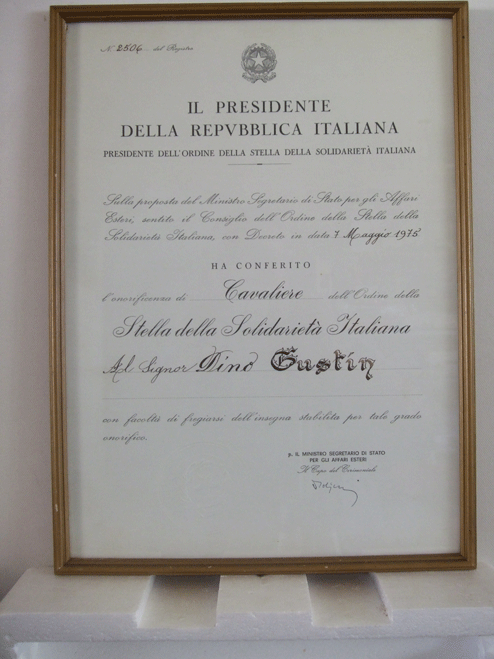 N° 2506 del Registro
IL PRESIDENTE
DELLA REPVBBLICA ITALIANA
PRESIDENTE DELL'ORDINE DELLA STELLA DELLA SOLIDARIETÀ ITALIANA
Sulla proposta del Ministro Segretario di Stato per gli Affari
Esteri, sentito il Consiglio dell'Ordine della Stella della
Solidarietà Italiana, con Decreto in data 7 Maggio 1975
HA CONFERITO
l'onorificenza di Cavaliere dell'Ordine della
Stella della Solidarietà Italiana
Al Signor Dino Gustin
con facoltà di fregiarsi dell'insegna stabilita per tale grado
onorifico.
p. IL MINISTRO SEGRETARIO DI STATO
PER GLI AFFARI ESTERI
Il Capo del Cerimoniale